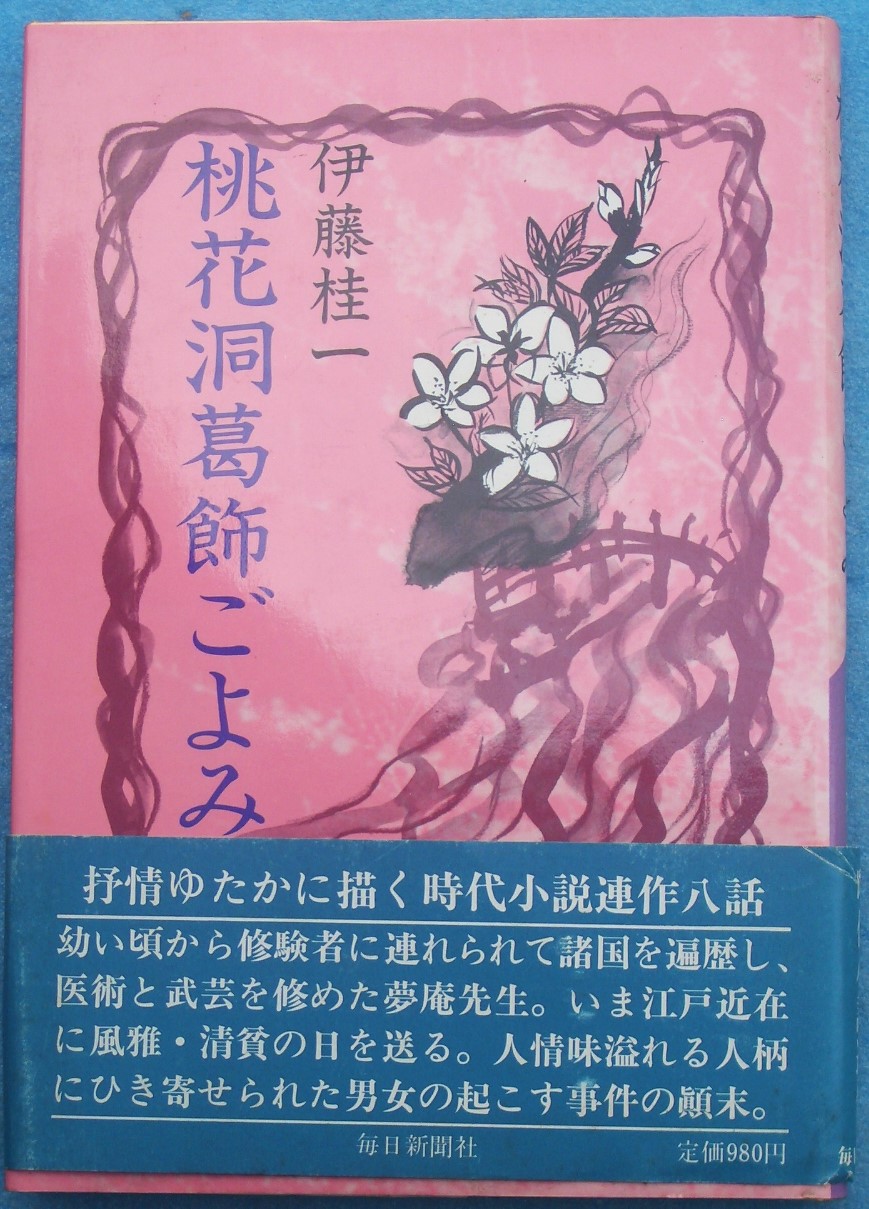 伊藤桂一
桃花洞葛飾ごよみ
抒情ゆたかに描く時代小説連作八話
幼い頃から修験者に連れられて諸国を遍歴し、
医術と武芸を修めた夢庵先生。いま江戸近在
に風雅・清貧の日を送る。人情味溢れる人柄
にひき寄せられた男女の起こす事件の顚末。
毎日新聞社
定価980円
毎